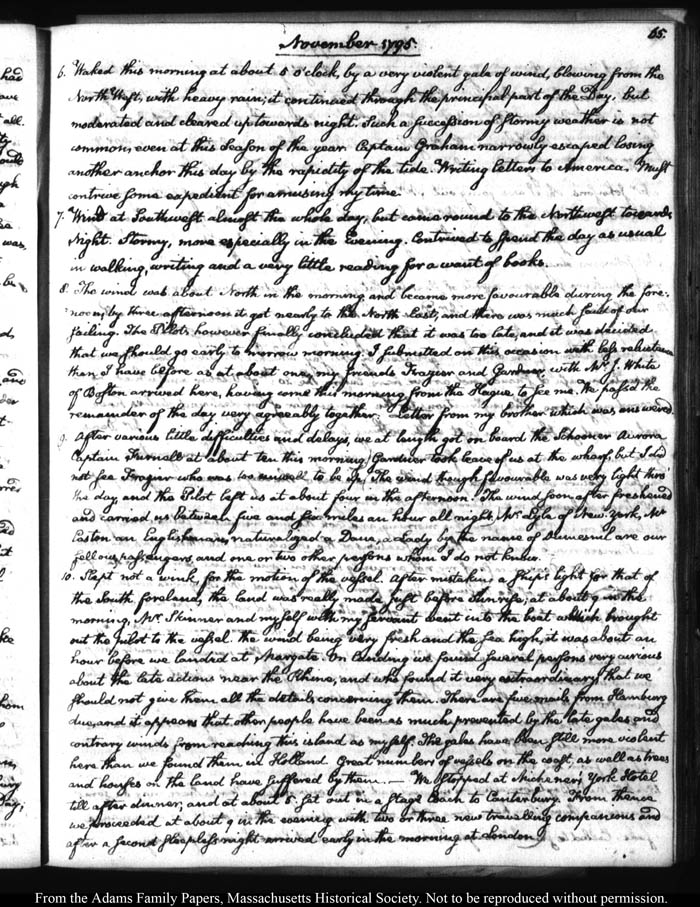 65.
November 1795.
6. Waked this morning at about 5 o'clock, by a very violent gale of wind, blowing from the
North West, with heavy rain; it continued through the principal part of the Day. but
moderated and cleared up towards night. Such a succession of stormy weather is not
common, even at this season of the year. Captain Graham narrowly escaped losing
another anchor this day by the rapidity of the tide. Writing letters to America. Must
contrive some expedient for amusing my time.
7. Wind at Southwest almost the whole day, but came round to the Northwest towards
Night. Stormy, more especially in the Evening. Contrived to spend the day as usual
in walking, writing and a very little reading for a want of books.
8. The wind was about North in the morning and became more favourable during the fore-
noon; by three afternoon it got nearly to the North East, and there was much said of our
sailing. The Pilots however finally concluded that it was too late, and it was decided
that we should go early to morrow morning. I submitted on this occasion with less reluctance
than I have before as at about one, my friends Frazier and Gardner, with Mr. J. White
of Boston arrived here, having come this morning from the Hague to see me. We pass'd the
remainder of the day very agreeably together. Letter from my brother which was answered.
9. After various little difficulties and delays, we at length got on board the Schooner Aurora
Captain Furnald at about ten this morning. Gardner took leave of us at the wharf, but I did
not see Frazier who was too unwell to be up. The wind though favourable was very light thro'
the day and the Pilot left us at about four in the afternoon. The wind soon after freshened
and carried us between five and six miles an hour all night. Mr. Lyle of New-York, Mr.
Easton an Englishman, naturalized a Dane, a Lady by the name of Dumesnil are our
fellow passengers, and one or two other persons whom I do not know.
10. Slept not a wink, for the motion of the vessel. After mistaking a ship's light for that of
the South foreland, the land was really made just before sunrise; at about 9 in the
morning, Mr. Skinner and myself with my servant went into the boat which brought
out the pilot to the vessel. the wind being very fresh and the sea high, it was about an
hour before we landed at Margate. On landing we found several persons very curious
about the late actions near the Rhine, and who found it very extraordinary that we
should not give them all the details concerning them. There are five mails from Hamburg
due, and it appears that other people have been as much prevented by the late gales and
contrary winds from reaching this island as myself. The gales have been still more violent
here than we found them in Holland. Great numbers of vessels on the coast, as well as trees
and houses on the land have suffered by them. — We stopped at Michener's York Hotel
till after dinner, and at about 5. set out in a Stage Coach to Canterbury. From thence
we proceeded at about 9 in the evening with two or three new travelling companions and
after a second sleepless night arrived early in the morning at London.
From the Adams Family Papers, Massachusetts Historical Society. Not to be reproduced without permission.